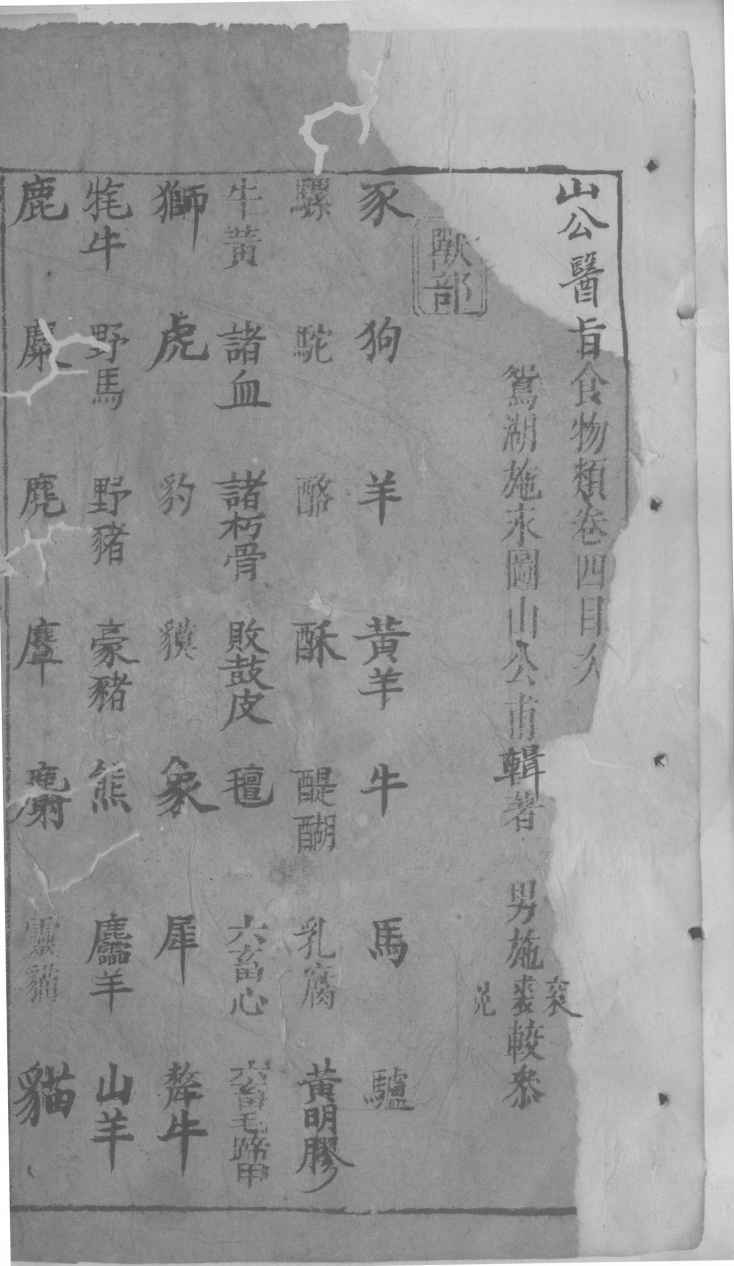 山公醫旨食物類卷四目
鴛湖施永圖山公甫輯著 男施裘較參
獸部
豕 狗 羊 黃羊 牛 馬 驢
騾 駝 酪 酥 醍醐 乳腐 黃明膠
牛黃 諸血 諸朽骨 敗鼓皮 氊 六畜心 六畜毛蹄甲
獅 虎 豹 貘 象 犀 犛牛
牦牛 野馬 野豬 豪豬 熊 麢羊 山羊
鹿 麋 麂 麞 麝 靈貓 貓